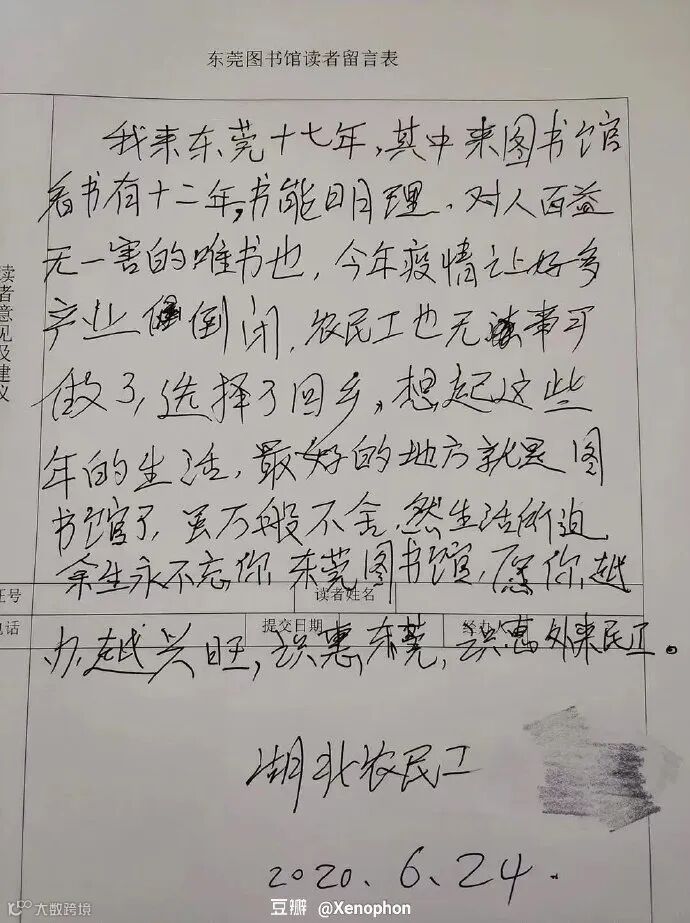 东莞图书馆读者留言表
我来东莞十七年,其中来图书馆
看书有十二年,书能明理、对人百益
无一害的唯书也,今年疫情让好多
产业倒闭,农民工也无事可
做了,选择了回乡,想起这些
年的生活,最好的地方就是图
书馆了,虽万般不舍,然生活所迫
余生永不忘你,东莞图书馆,愿你越
办越兴旺,识惠东莞,识惠外来民工。
读者意见及建议
证号
读者姓名
电话
提交日期
经办人
湖北农民工
2020.6.24.
大数跨境
豆瓣 @Xenophon